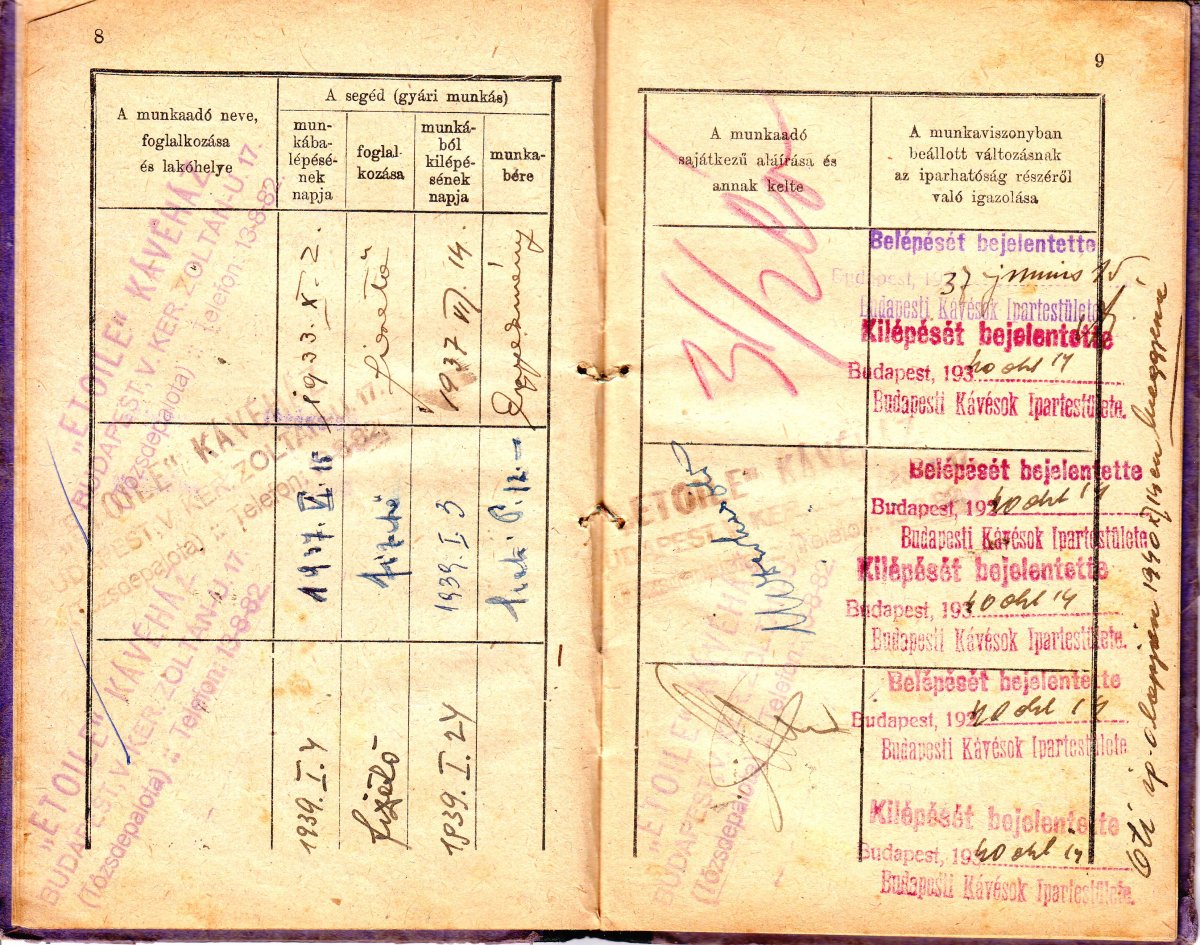 8
A munkaadó neve,
foglalkozása
és lakóhelye
A segéd (gyári munkás)
mun-
kába-
lépésé-
nek
napja
foglal-
kozása
munká-
ból
kilépé-
sének
napja
munka-
bére
„ETOILE” KÁVÉHÁZ
BUDAPEST, V. KER. ZOLTÁN-U 17.
(Tőzsdepalota) :: Telefon 13-8-82.
1933. X. 2.
fizető
1937 VI. 14.
Egyezmény
„ETOILE” KÁVÉH
BUDAPEST, V. KER. ZOLTÁN-U. 17.
Tőzsdepalota) :: Telefon:
1937. VI. 15
fizető
1939. I. 3
heti P. 12.—
„ETOILE” KÁVÉHÁ
BUDAPEST, V. KER. ZOLTÁN-U 17
(Tőzsdepalota) :: Telefon: 13-8-82.
1939. I. 4
fizető
1939. I. 24
9
A munkaadó
sajátkezű aláírása és
annak kelte
A munkaviszonyban
beállott változásnak
az iparhatóság részéről
való igazolása
Belépését bejelentette
Budapest, 1937 junius 15
Budapesti Kávésok Ipartestülete
Kilépését bejelentette
Budapest, 193 40 okt 14
Budapesti Kávésok Ipartestülete.
„ETOILE” KÁVÉ
BUDAPEST, V. KER.
Belépését bejelentette
Budapest, 192 40 okt 14
Budapesti Kávésok Ipartestülete
Kilépését bejelentette
Budapest, 193 40 okt 14
Budapesti Kávésok Ipartestülete.
„ETOILE” KÁVÉHÁ
BUDAPEST, V. KER.
(Tőzsdepalota) :: Telefon:
Belépését bejelentette
Budapest, 192 40 okt 14
Budapesti Kávésok Ipartestülete
Kilépését bejelentette
Budapest, 193 40 okt 14
Budapesti Kávésok Ipartestülete.
alapján 1940